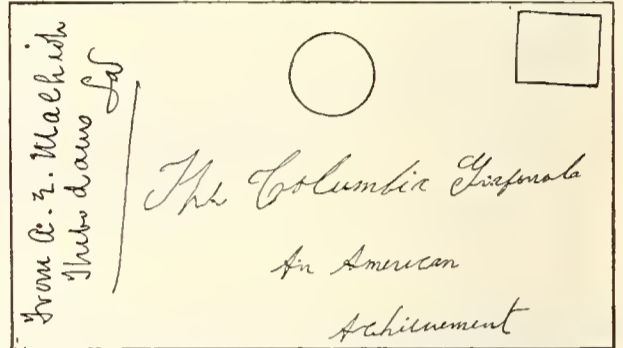 From A. Z. Malhiot
Thibodaux La
The Columbia Grafonola
An American
Achievement